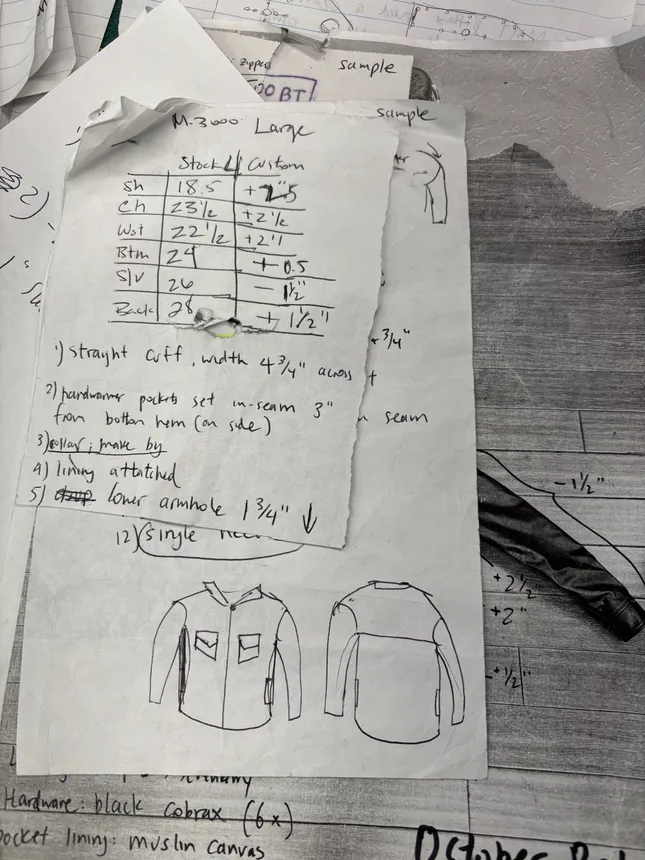 zipper
sample
00BT
sample
M-3000 Large
Stock Custom
Sh 18.5
Ch 23 1/2 +2 1/2
Wst 22 1/2 +2"
Btm 24 +0.5
Slv 26 - 1 1/2"
Back 28 + 1 1/2"
3/4"
1) straight cuff, width 4 3/4" across
2) handwarmer pockets set in-seam 3"
from bottom hem (on side)
seam
3) collar; make by
4) lining attatched
5) lower armhole 1 3/4" ↓
12) single
-1 1/2"
+2 1/2
+2"
+1/2"
Hardware: black cobrax (6x)
pocket lining: muslin canvas
October